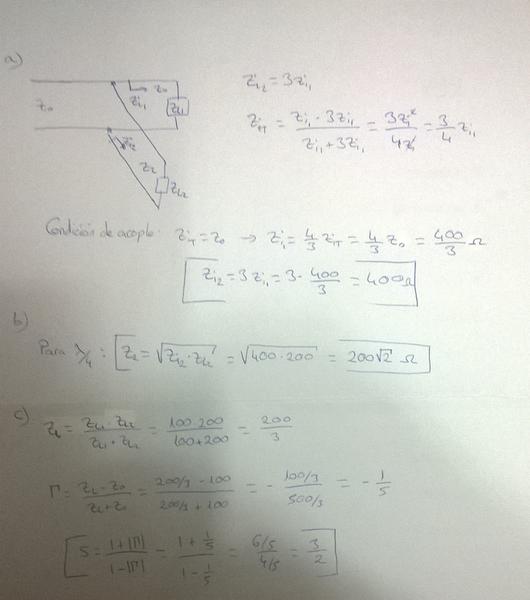 a)
Z₀
Zi₁
Z₀
ZL₁
Zi₂
Z₂
ZL₂
Zi₂ = 3Zi₁
ZiT = (Zi₁ · 3Zi₁)/(Zi₁ + 3Zi₁) = 3Zi₁²/4Zi₁ = 3/4 Zi₁
Condición de acople: ZiT = Z₀ → Zi₁ = 4/3 ZiT = 4/3 Z₀ = 400/3 Ω
Zi₂ = 3Zi₁ = 3 · 400/3 = 400Ω
b)
Para λ/4 : Z₂ = √(Zi₂ · ZL₂) = √(400 · 200) = 200√2 Ω
c)
ZL = (ZL₁ · ZL₂)/(ZL₁ + ZL₂) = (100 · 200)/(100 + 200) = 200/3
Γ = (ZL - Z₀)/(ZL + Z₀) = (200/3 - 100)/(200/3 + 100) = - (100/3)/(500/3) = - 1/5
S = (1+|Γ|)/(1-|Γ|) = (1 + 1/5)/(1 - 1/5) = (6/5)/(4/5) = 3/2